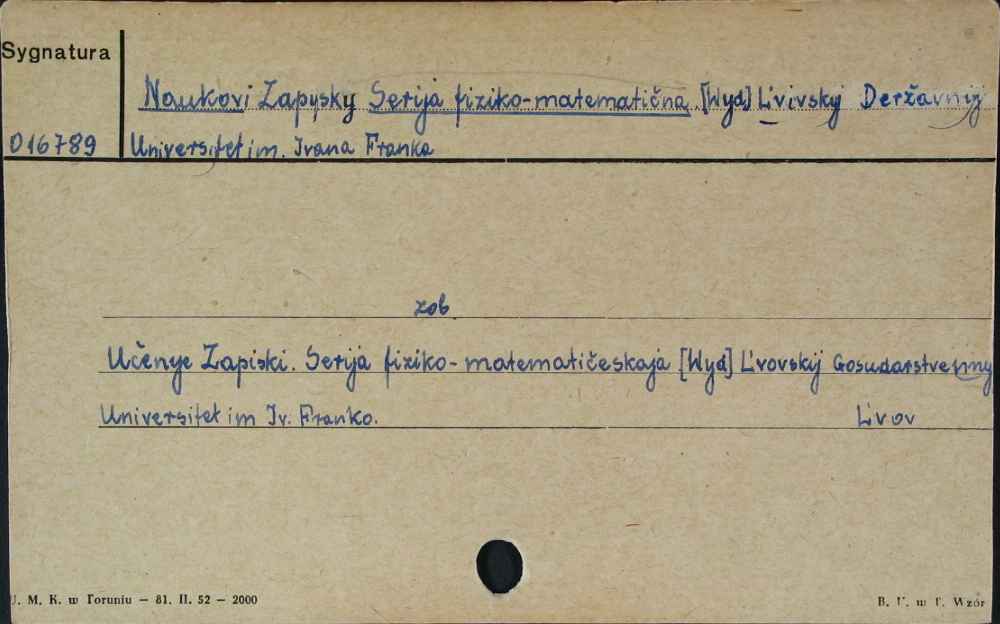 Sygnatura
Naukovi Zapysky Serija fiziko-matematična [Wyd] L'vivskÿ Deržavnÿ
016789 Universitet im. Ivana Franka
zob
Učenye Zapiski. Serija fiziko-matematičeskaja [Wyd] L'vovskÿ Gosudarstvennyj
Universitet im Iv. Franko. L'vov
U. M. K. w Toruniu — 81. II. 52 — 2000 B. U. w T. Wzór